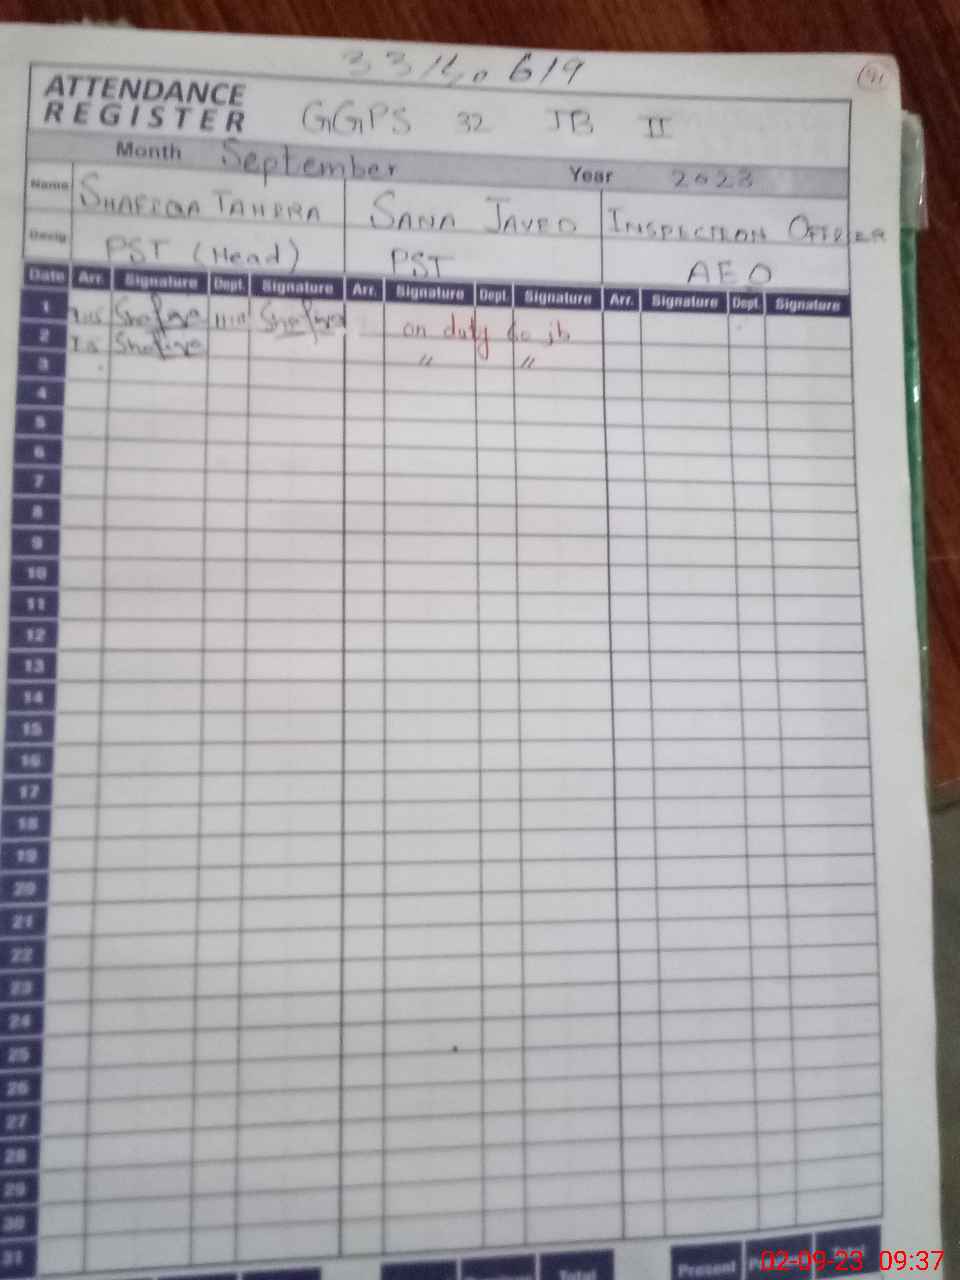 33150619
91
ATTENDANCE
REGISTER GGPS 32 JB II
Month September Year 2023
Name SHAFIQA TAHIRA SANA JAVED INSPECTION OFFICER
Desig PST (Head) PST AEO
Date Arr. Signature Dept. Signature Arr. Signature Dept. Signature Arr. Signature Dept. Signature
1 Shafiqa Shafiqa on duty 60 jb
2 Shafiqa " "
3
4
5
6
7
8
9
10
11
12
13
14
15
16
17
18
19
20
21
22
23
24
25
26
27
28
29
30
31
Total Present
02-09-23 09:37